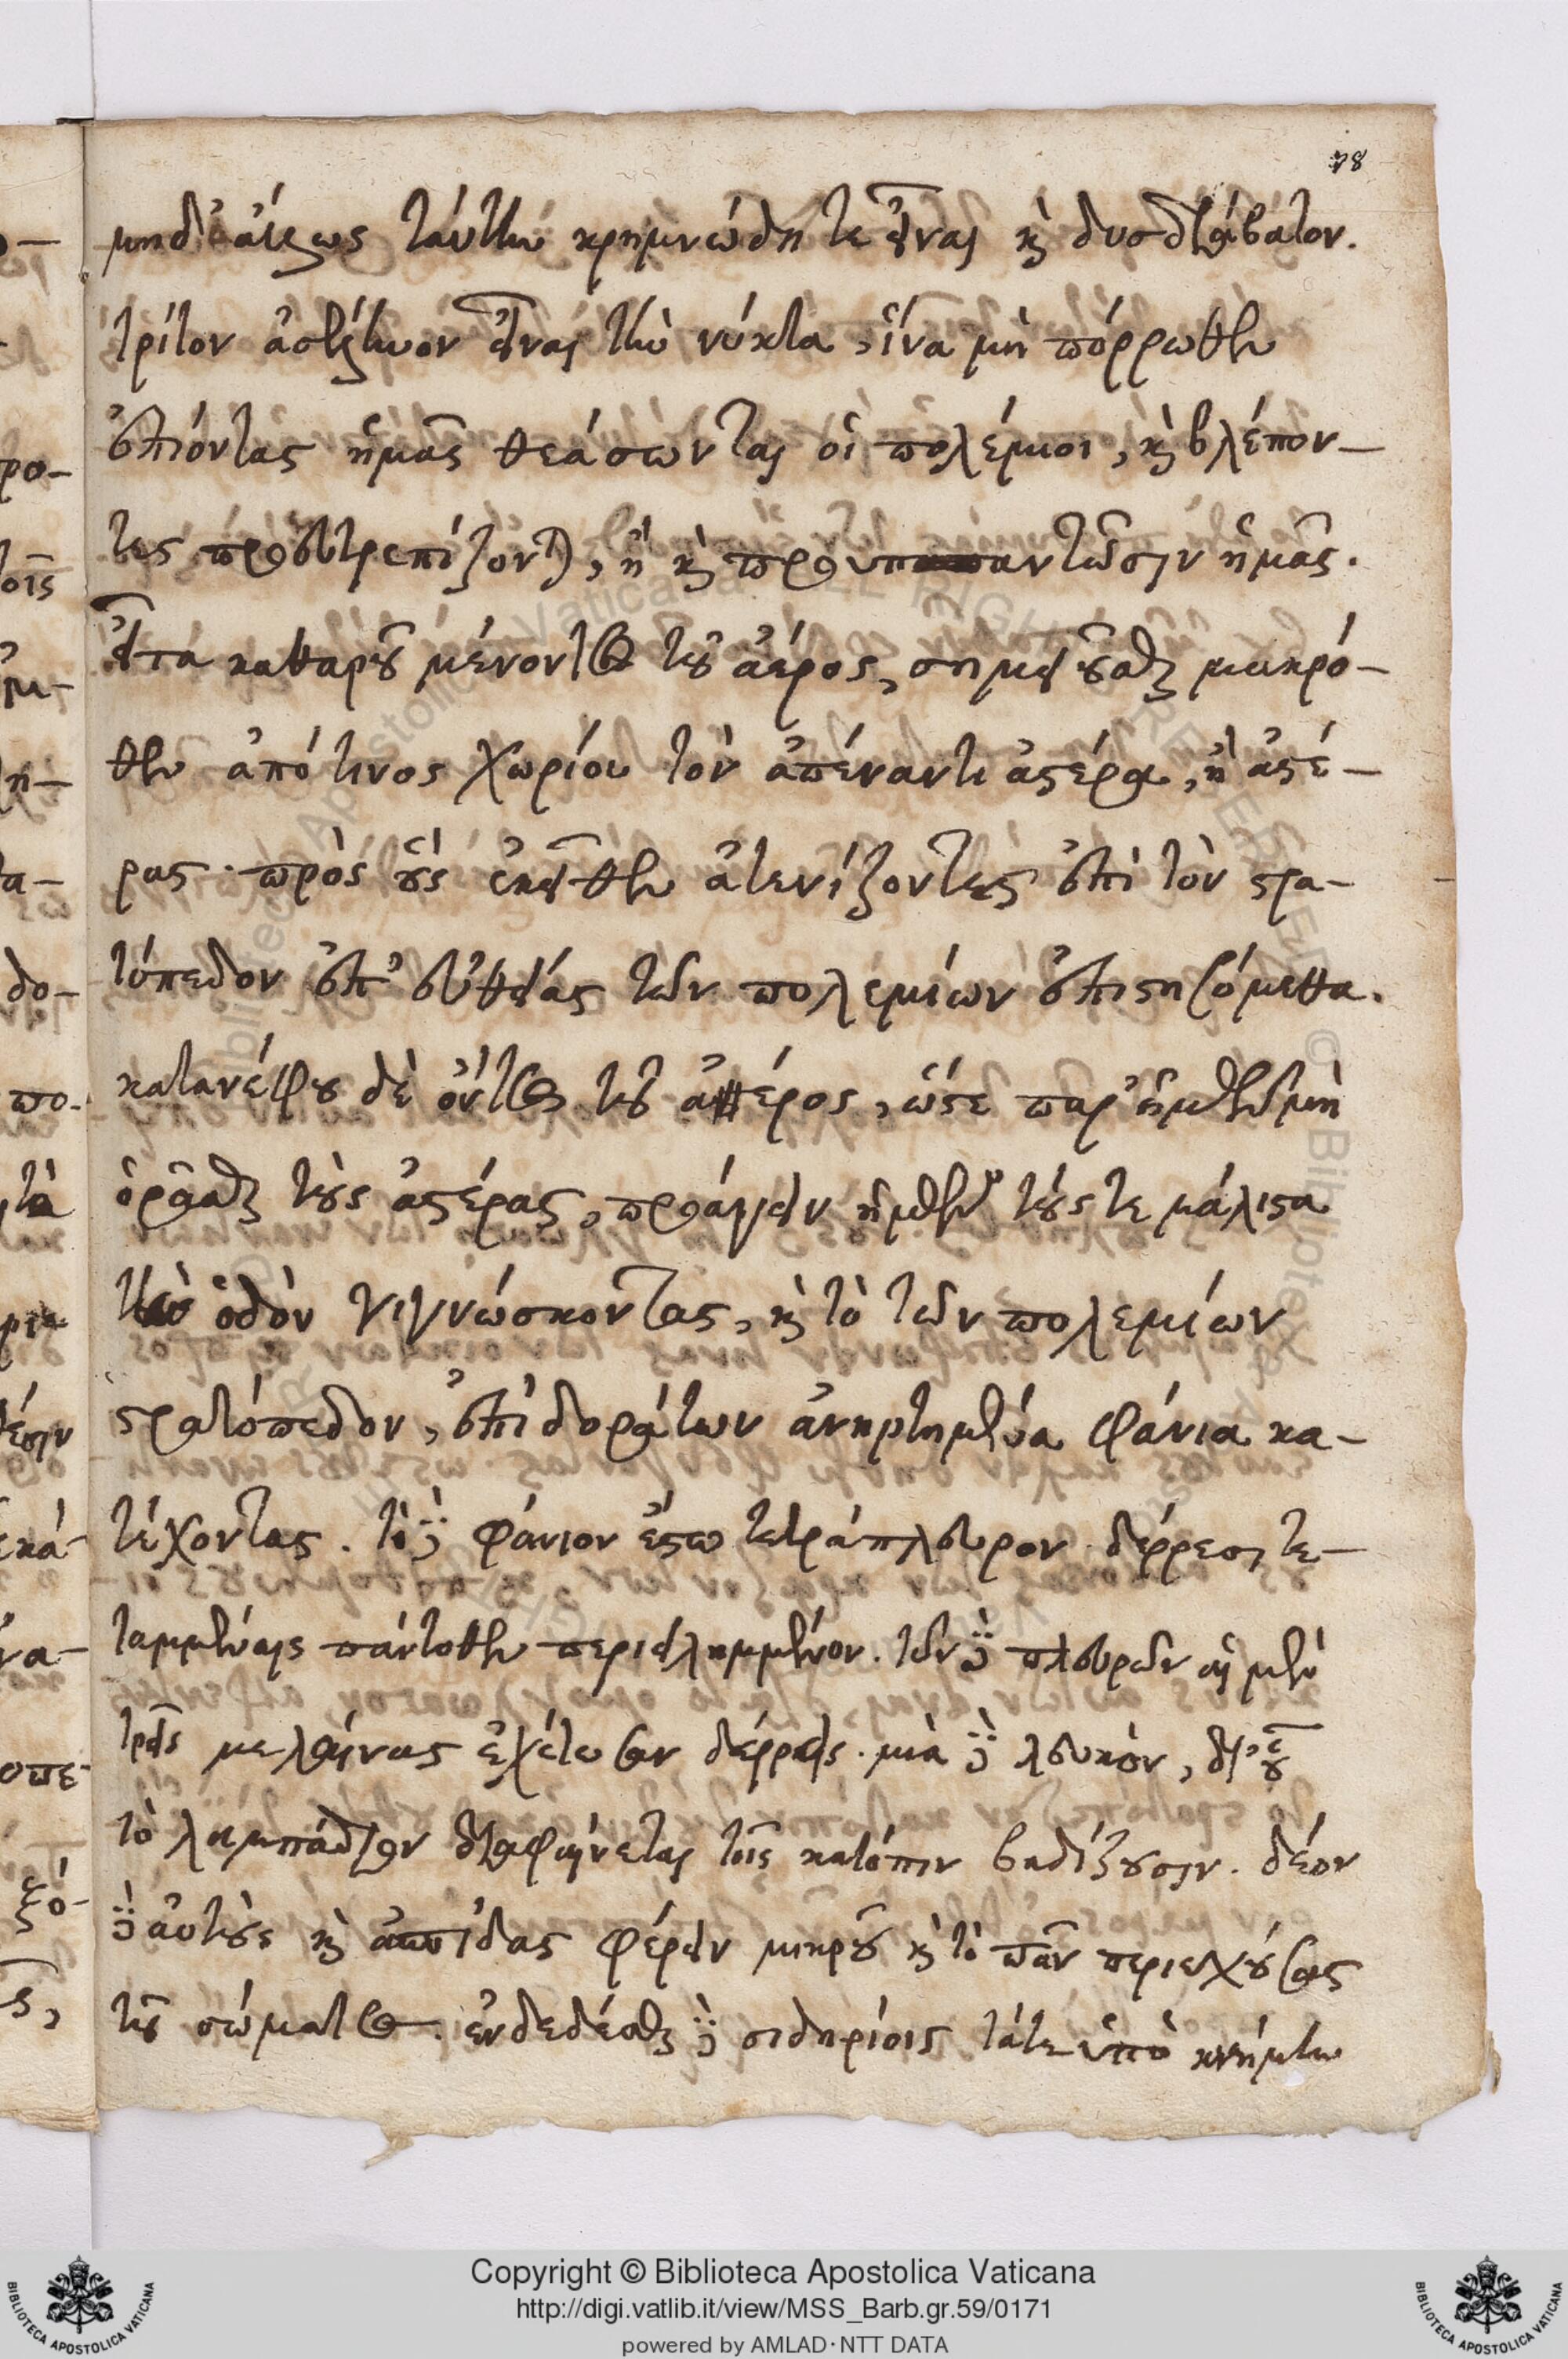 78
μηδ' ἄλλως ταύτην κρημνώδη τε εἶναι καὶ δυσδιάβατον.
τρίτον ἀσέληνον εἶναι τὴν νύκτα, ἵνα μὴ πόρρωθεν
ἐπιόντας ἡμᾶς θεάσωνται οἱ πολέμιοι, καὶ βλέπον-
τες προευτρεπίζονται, ἢ καὶ προυπαντῶσιν ἡμᾶς.
εἶτα καθαροῦ μένοντος τοῦ ἀέρος, σημειοῦσθαι μακρό-
θεν ἀπό τινος χωρίου τὸν ἀπέναντι ἀστέρα, ἢ ἀστέ-
ρας· πρὸς οὓς ἐκεῖθεν ἀτενίζοντες ἐπὶ τὸν στρα-
τόπεδον ἐπ' εὐθείας τῶν πολεμίων ἐπιστησόμεθα.
κατανέφου δὲ ὄντος τοῦ ἀέρος, ὥστε παρ' ἡμῶν μὴ
ὁρᾶσθαι τοὺς ἀστέρας, προάγειν ἡμῶν τούς τε μάλιστα
τὴν ὁδὸν γιγνώσκοντας, καὶ τὸ τῶν πολεμίων
στρατόπεδον, ἐπὶ δοράτων ἀνηρτημένα φάνια κα-
τέχοντας. τὸ δὲ φάνιον ἔστω τετράπλευρον δέρρεσι τε-
ταμμέναις πάντοθεν περιειλημμένον. τῶν δὲ πλευρῶν αἱ μὲν
τρεῖς μελαίνας ἐχέτωσαν δέρρεις. μία δὲ λευκὸν, δι' οὗ
τὸ λαμπάδιον διαφαίνεται τοῖς κατόπιν βαδίζουσιν. δέον
δὲ αὐτοὺς καὶ ἀσπίδας φέρειν μικροῦ καὶ τὸ πᾶν περιεχούσας
τοῦ σώματος. ἐνδεδέσθαι δὲ σιδηρίοις τάτε ὑπὸ κνήμην
Copyright © Biblioteca Apostolica Vaticana
http://digi.vatlib.it/view/MSS_Barb.gr.59/0171
powered by AMLAD·NTT DATA